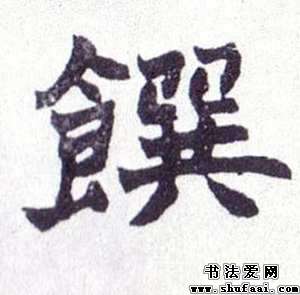 饌
书法爱网
www.shufaai.com